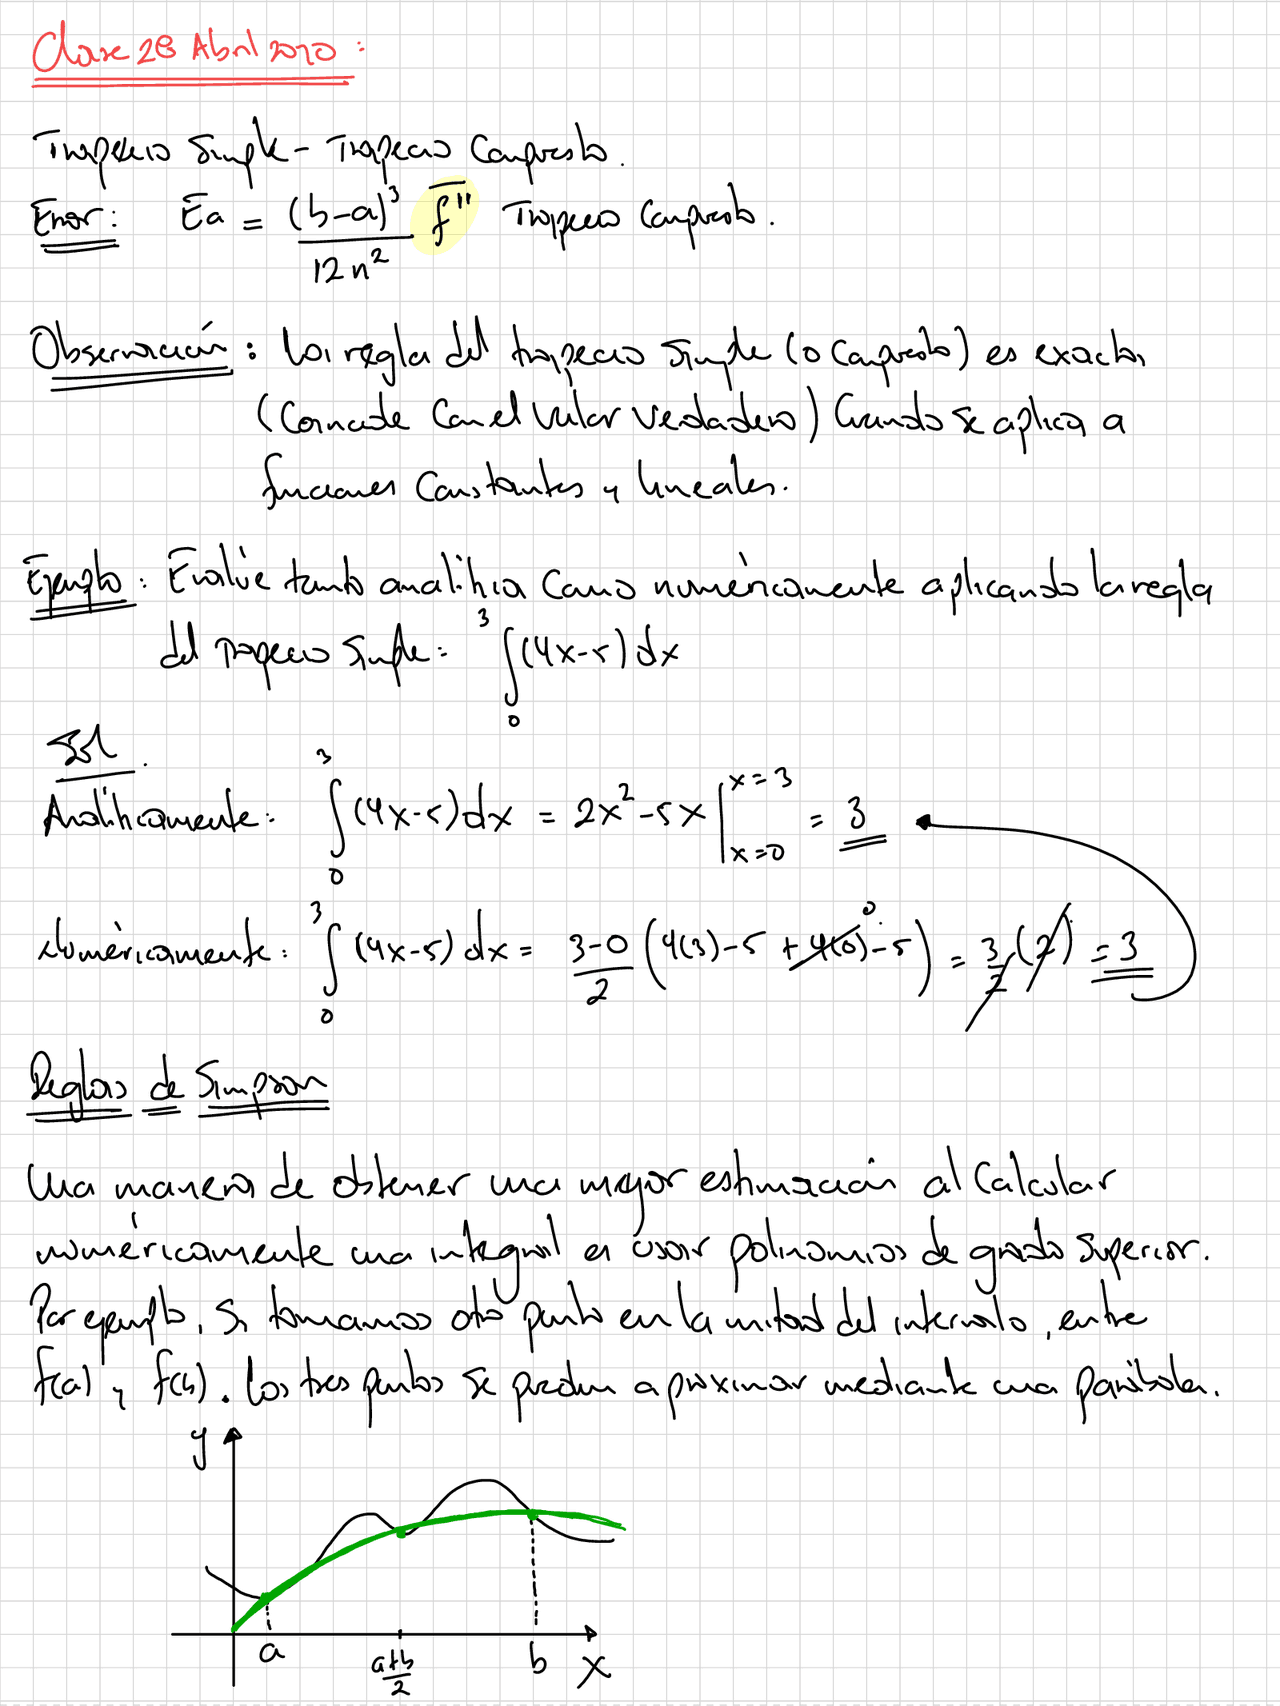 Clase 28 Abril 2020:
Trapecio Simple - Trapecio Compuesto.
Error: Ea = (b-a)³/12n² f̅'' Trapecio Compuesto.
Observación: La regla del trapecio simple (o compuesto) es exacta,
(Coincide con el valor verdadero) Cuando se aplica a
funciones constantes y lineales.
Ejemplo: Evalúe tanto analítica como numéricamente aplicando la regla
del trapecio simple: ∫₀³ (4x-5) dx
Sol.
Analíticamente: ∫₀³ (4x-5) dx = 2x² - 5x |ₓ₌₀ˣ⁼³ = 3
Numéricamente: ∫₀³ (4x-5) dx = 3-0/2 (4(3)-5 + 4(0)-5) = 3/2 (2) = 3
0
Reglas de Simpson
Una manera de obtener una mejor estimación al calcular
numéricamente una integral es usar polinomios de grado superior.
Por ejemplo, si tomamos otro punto en la mitad del intervalo, entre
f(a) y f(b). Los tres puntos se pueden aproximar mediante una parábola.
y
a a+b/2 b x